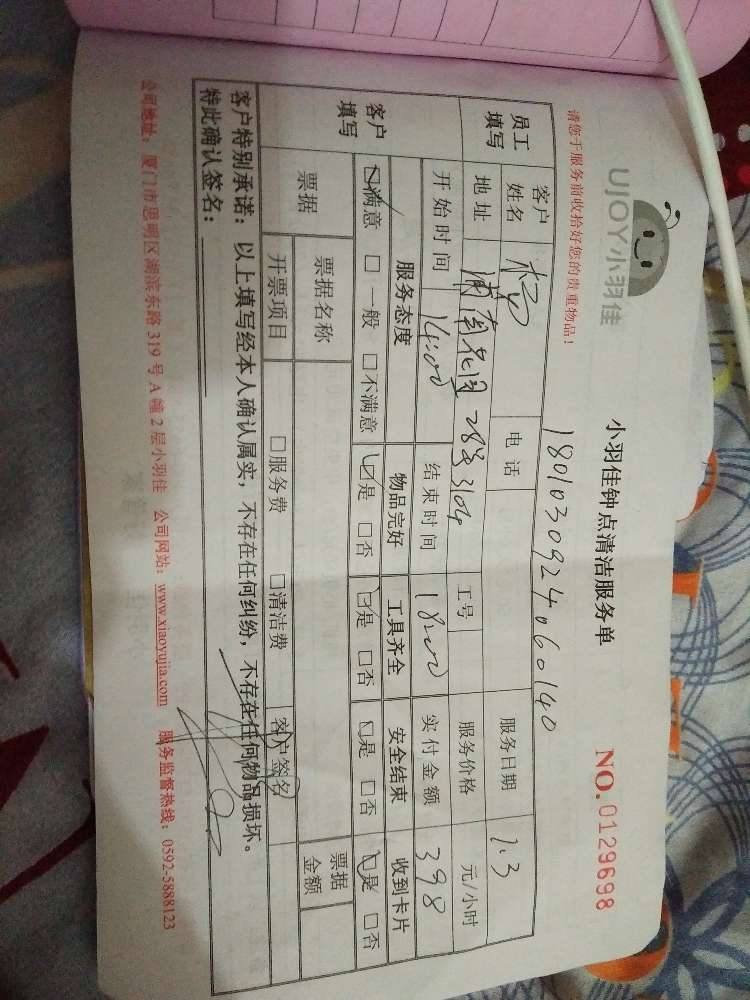 UJOY小羽佳
小羽佳钟点清洁服务单
NO.0129698
请您于服务前收拾好您的贵重物品！
1801030924060140
员工填写 客户姓名 杨 电话 服务日期 1.3
地址 花园 28号 3104 工号 服务价格 元/小时
开始时间 14:00 结束时间 18:00 实付金额 398
客户填写 服务态度 物品完好 工具齐全 安全结束 收到卡片
☑满意 □一般 □不满意 ☑是 □否 ☑是 □否 ☑是 □否 ☑是 □否
票据 票据名称 票据金额
开票项目 □服务费 □清洁费 客户签名
客户特别承诺：以上填写经本人确认属实，不存在任何纠纷，不存在任何物品损坏。
特此确认签名：
公司地址：厦门市思明区湖滨东路319号A幢2层小羽佳 公司网站：www.xiaoyujia.com 服务监督热线：0592-5888123